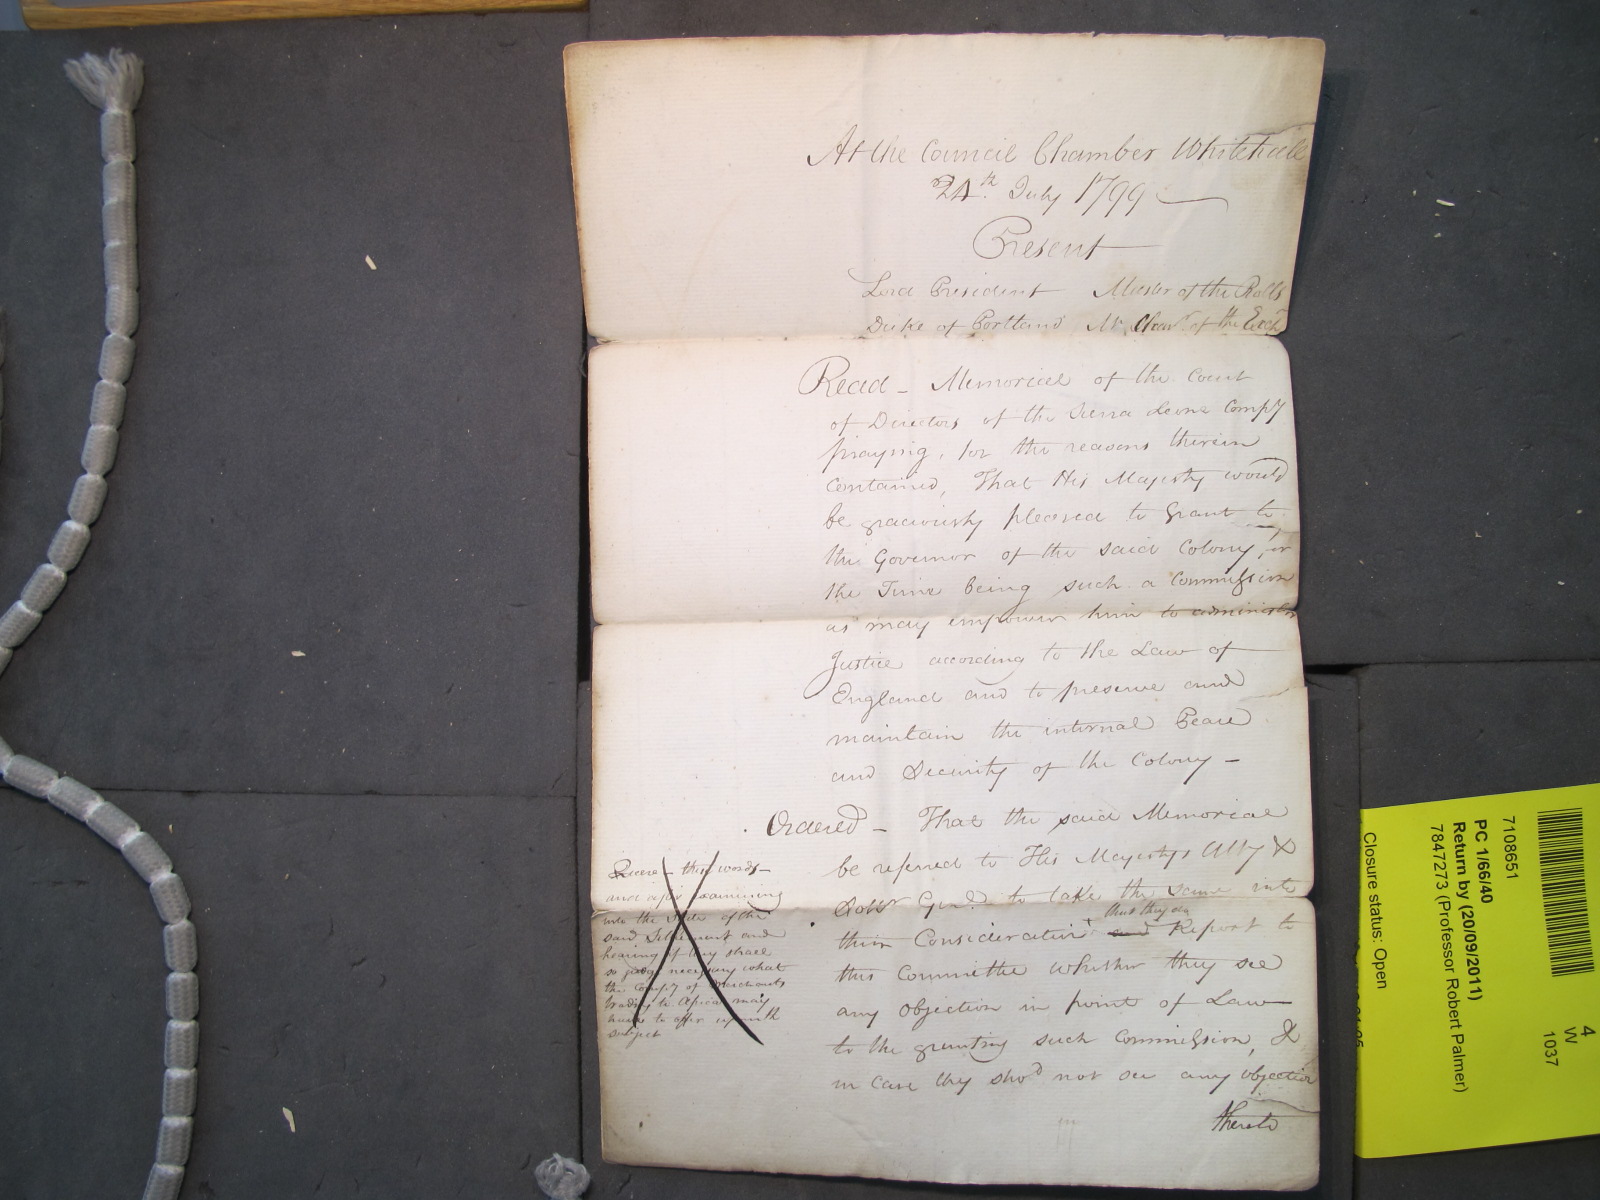 At the Council Chamber Whitehall
24th. July 1799
Present
Lord President Master of the Rolls
Duke of Portland Mr. Chanr. of the Exchr
Read - Memorial of the Court
of Directors of the Sierra Leone Compy
praying, for the reasons therein
contained, That His Majesty would
be graciously pleased to Grant to
the Governor of the said Colony for
the Time being such a Commission
as may empower him to administer
Justice according to the Law of
England and to preserve and
maintain the internal Peace
and Security of the Colony -
Ordered - That the said Memorial
be referred to His Majestys Atty &
Sollr Genl. to take the same into
that they do
their Consideration and Report to
this Committee whether they see
any Objection in point of Law
to the granting such Commission, &
in case they shod not see any objection
thereto
Quere - these words -
and after examining
into the State of the
said Settlement and
hearing if they shall
so judge necessary what
the Compy of Merchants
trading to Africa may
have to offer upon the
subject
7108651
PC 1/66/40
Return by (20/09/2011)
7847273 (Professor Robert Palmer)
Closure status: Open
4
W
1037